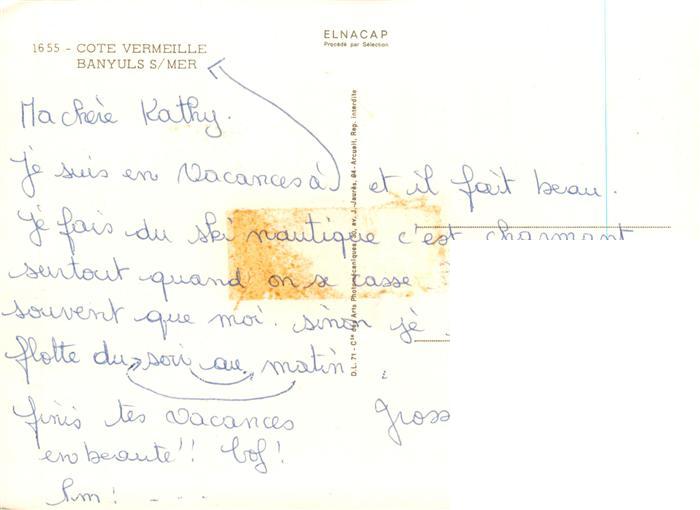 ELNACAP
Procédé par Sélection
1655 - COTE VERMEILLE
BANYULS S/MER
Ma chère Kathy.
Je suis en vacances à et il fait beau.
Je fais du ski nautique c'est charmant
surtout quand on se casse
souvent que moi. sinon je
flotte du soir au matin
finis tes vacances
en beauté!! bof!
Gross
D.L. 71 - Cie des Arts Photomécaniques, av. J.-Jaurès, 94-Arcueil, Rep. interdite